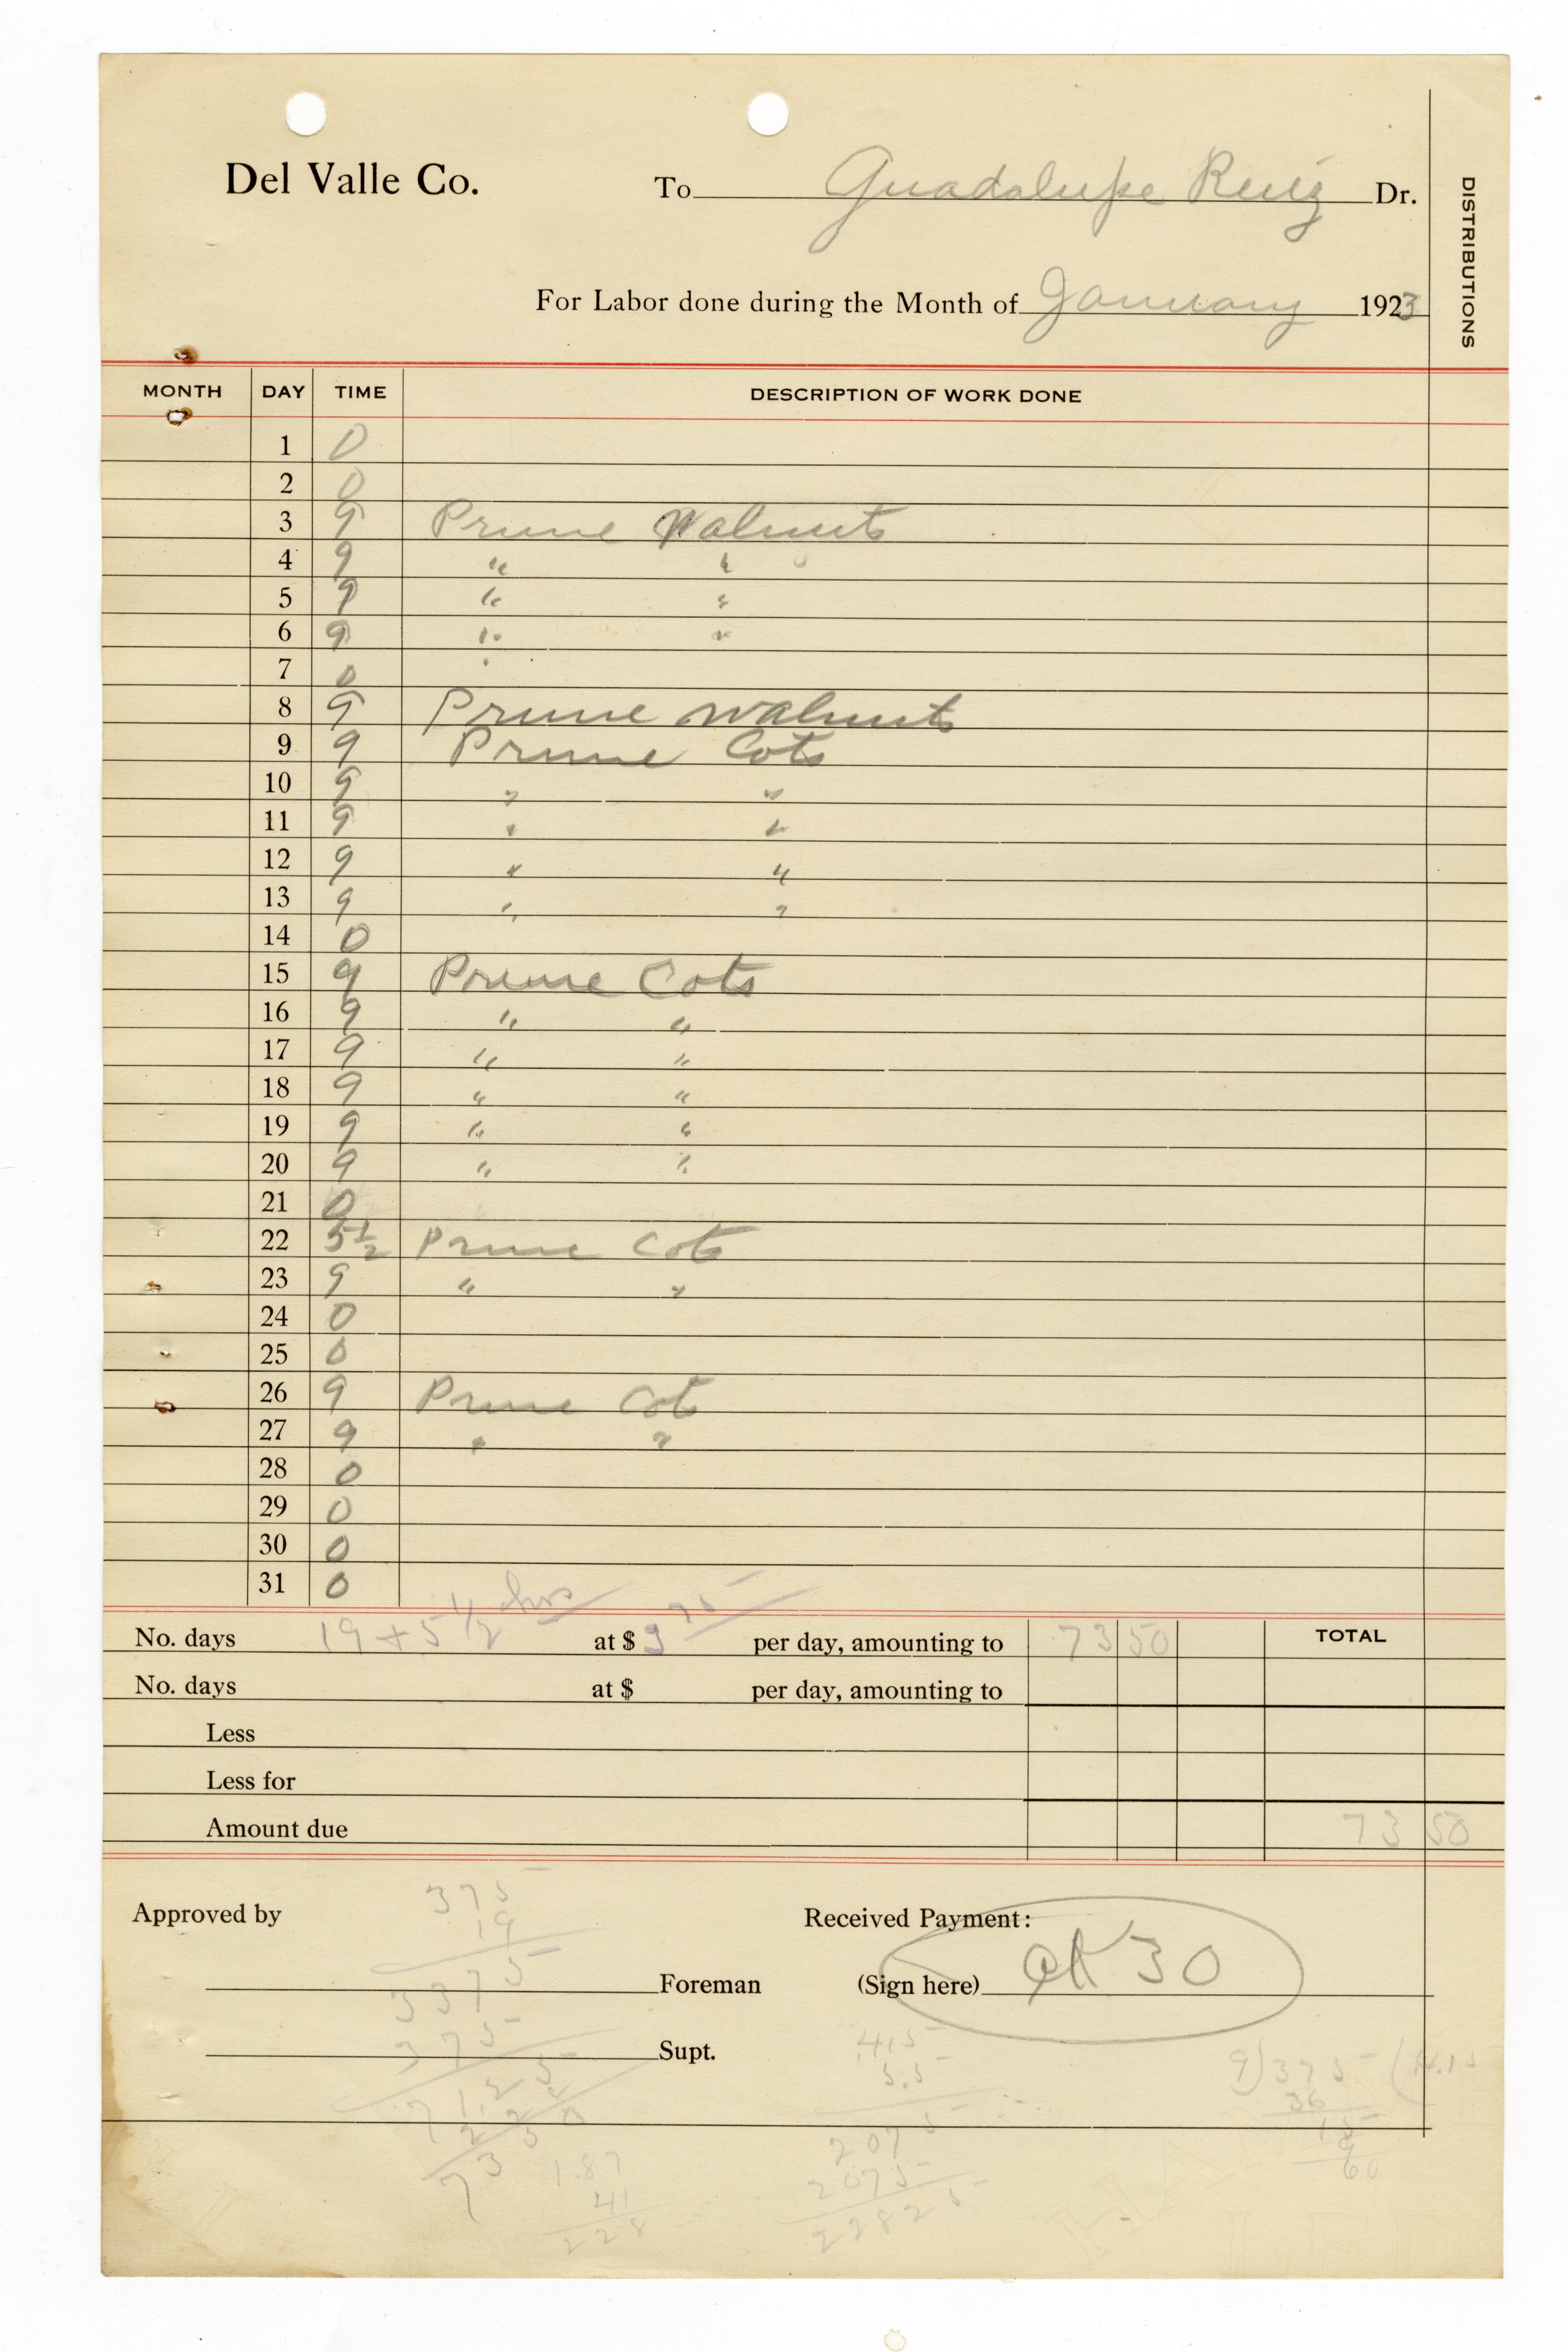 Del Valle Co. To Guadalupe Ruiz Dr.
DISTRIBUTIONS
For Labor done during the Month of January 1923
MONTH DAY TIME DESCRIPTION OF WORK DONE
1 0
2 0
3 9 Prune Walnuts
4 9 " "
5 9 " "
6 9 " "
7 0
8 9 Prune Walnuts
9 9 Prune Cots
10 9 " "
11 9 " "
12 9 " "
13 9 " "
14 0
15 9 Prune Cots
16 9 " "
17 9 " "
18 9 " "
19 9 " "
20 9 " "
21 0
22 5 1/2 Prune Cots
23 9 " "
24 0
25 0
26 9 Prune Cots
27 9 " "
28 0
29 0
30 0
31 0
No. days 19 + 5 1/2 hrs at $ 3 75 per day, amounting to 73 50 TOTAL
No. days at $ per day, amounting to
Less
Less for
Amount due 73 50
Approved by
Received Payment:
375
19
3375
375
71.25
2 28
73 53
Foreman
(Sign here) 30
Supt.
415
5.5
2075
2075
22825
9)375(4.15
36
15
9
60
1.87
41
228